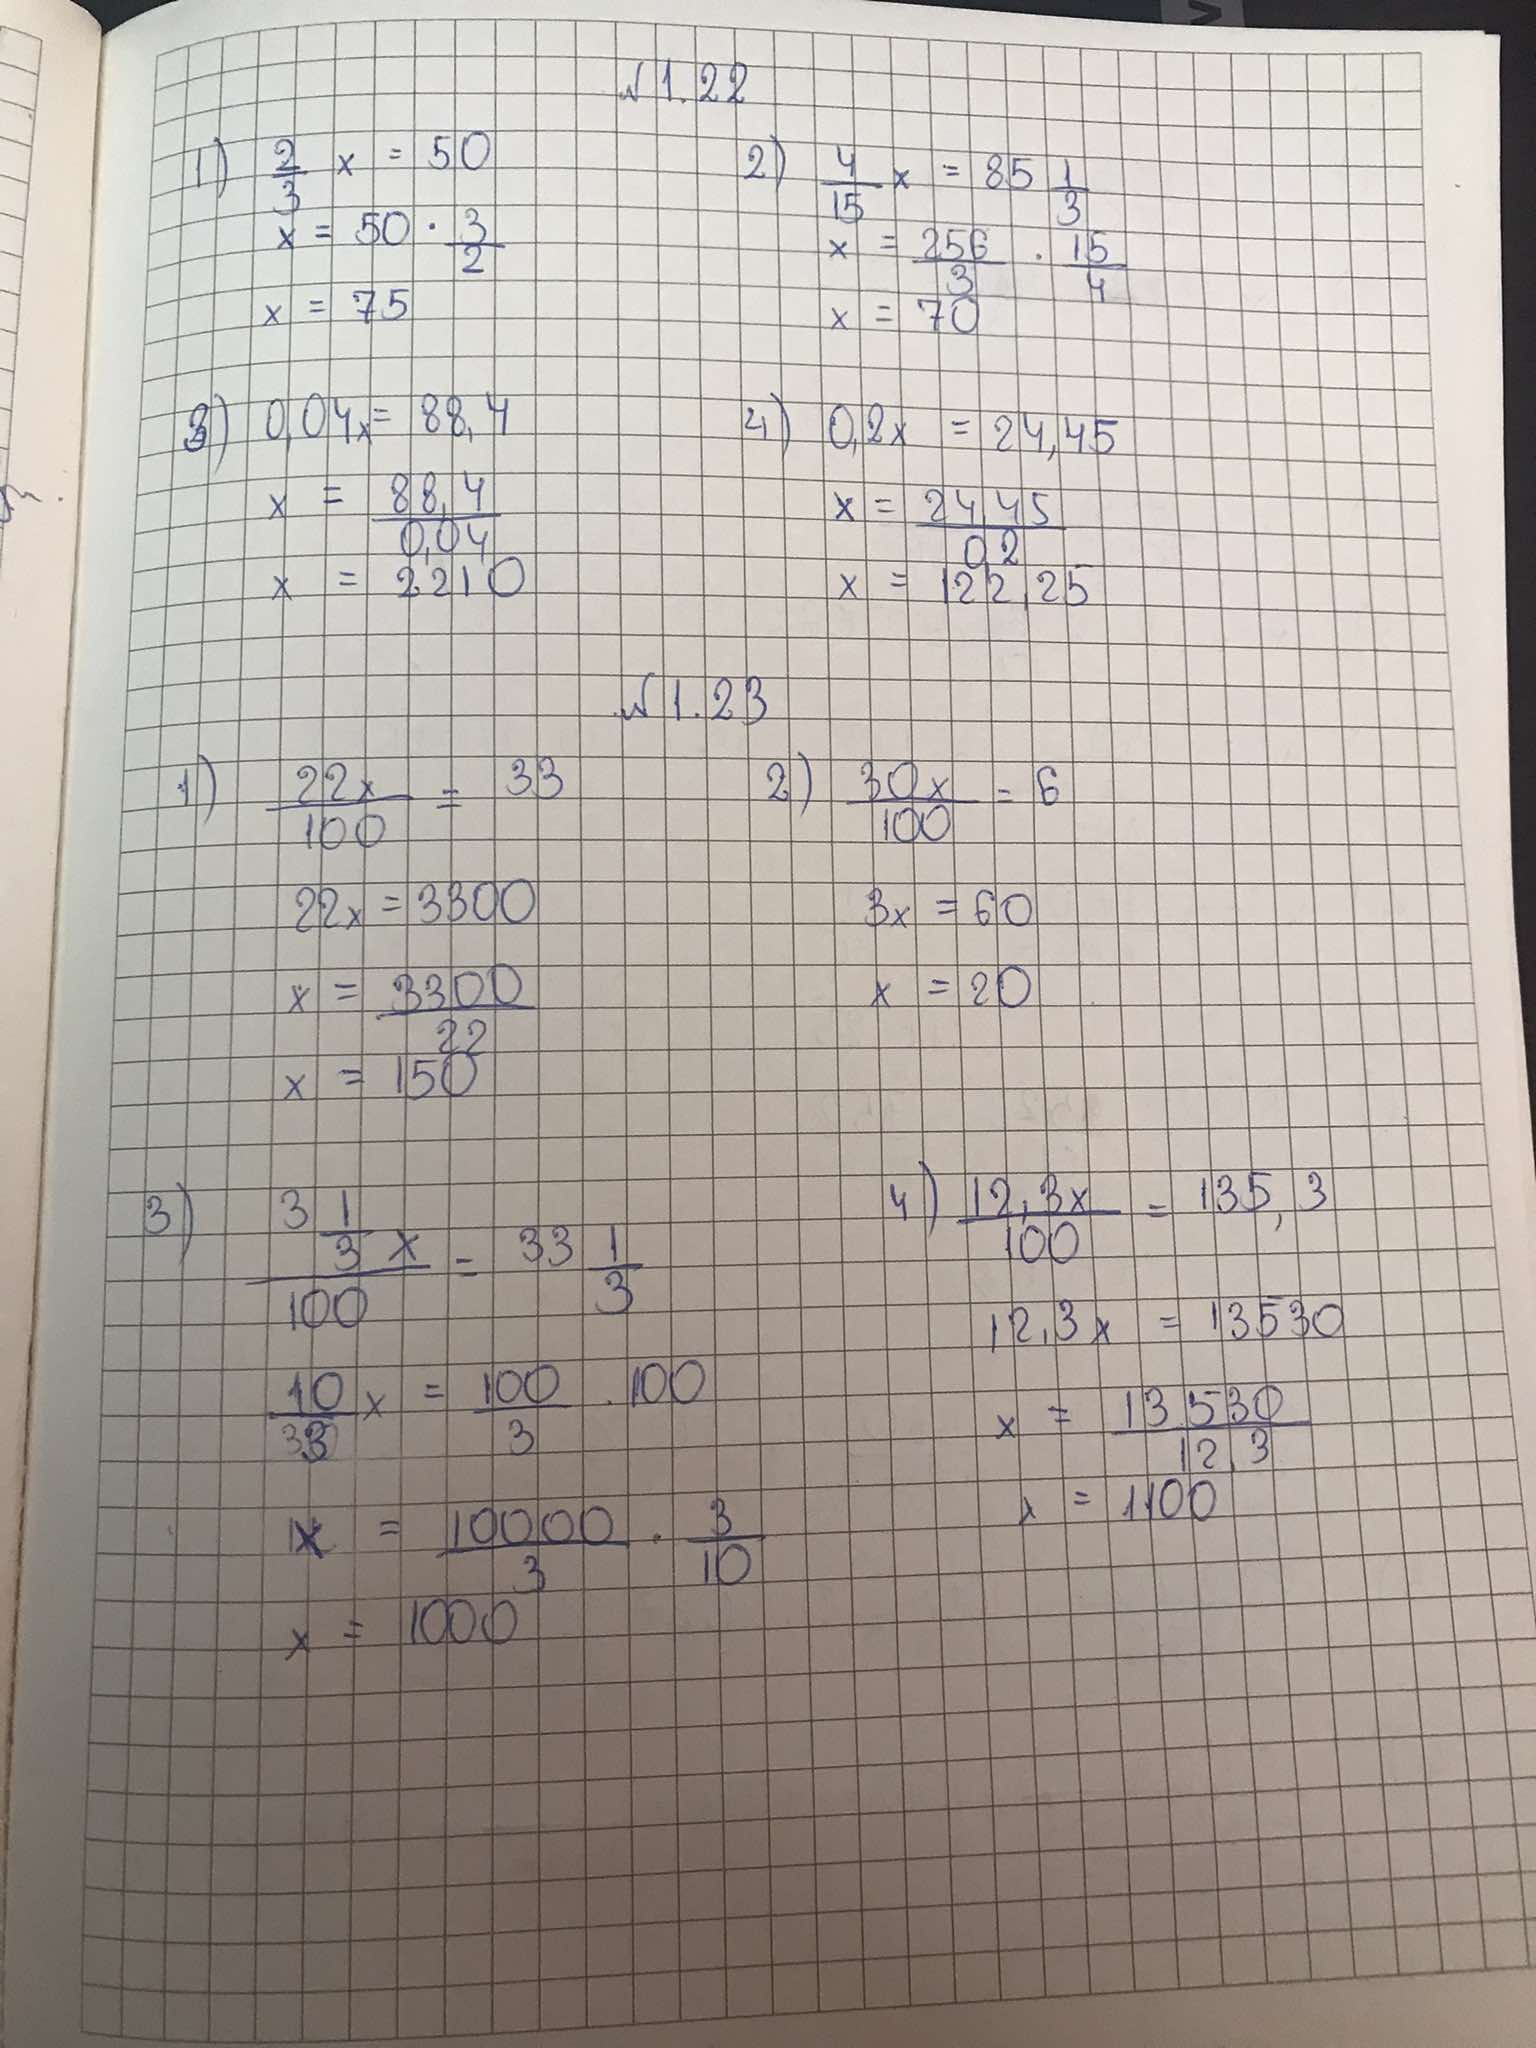 № 1.22
1) 2/3 x = 50
x = 50 · 3/2
x = 75
2) 4/15 x = 85 1/3
x = 256/3 · 15/4
x = 70
3) 0,04x = 88,4
x = 88,4/0,04
x = 2210
4) 0,2x = 24,45
x = 24,45/0,2
x = 122,25
№ 1.23
1) 22x/100 = 33
22x = 3300
x = 3300/22
x = 150
2) 30x/100 = 6
3x = 60
x = 20
3) 3 1/3 x/100 = 33 1/3
10/3 x = 100/3 · 100
x = 10000/3 · 3/10
x = 1000
4) 12,3x/100 = 135,3
12,3x = 13530
x = 13530/12,3
x = 1100